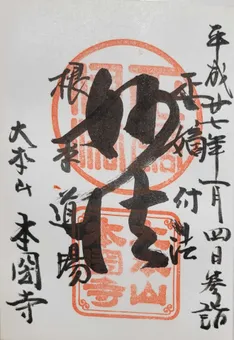 平成廿七年一月四日参詣
正嫡付法
妙法
根本道場
大本山 本圀寺